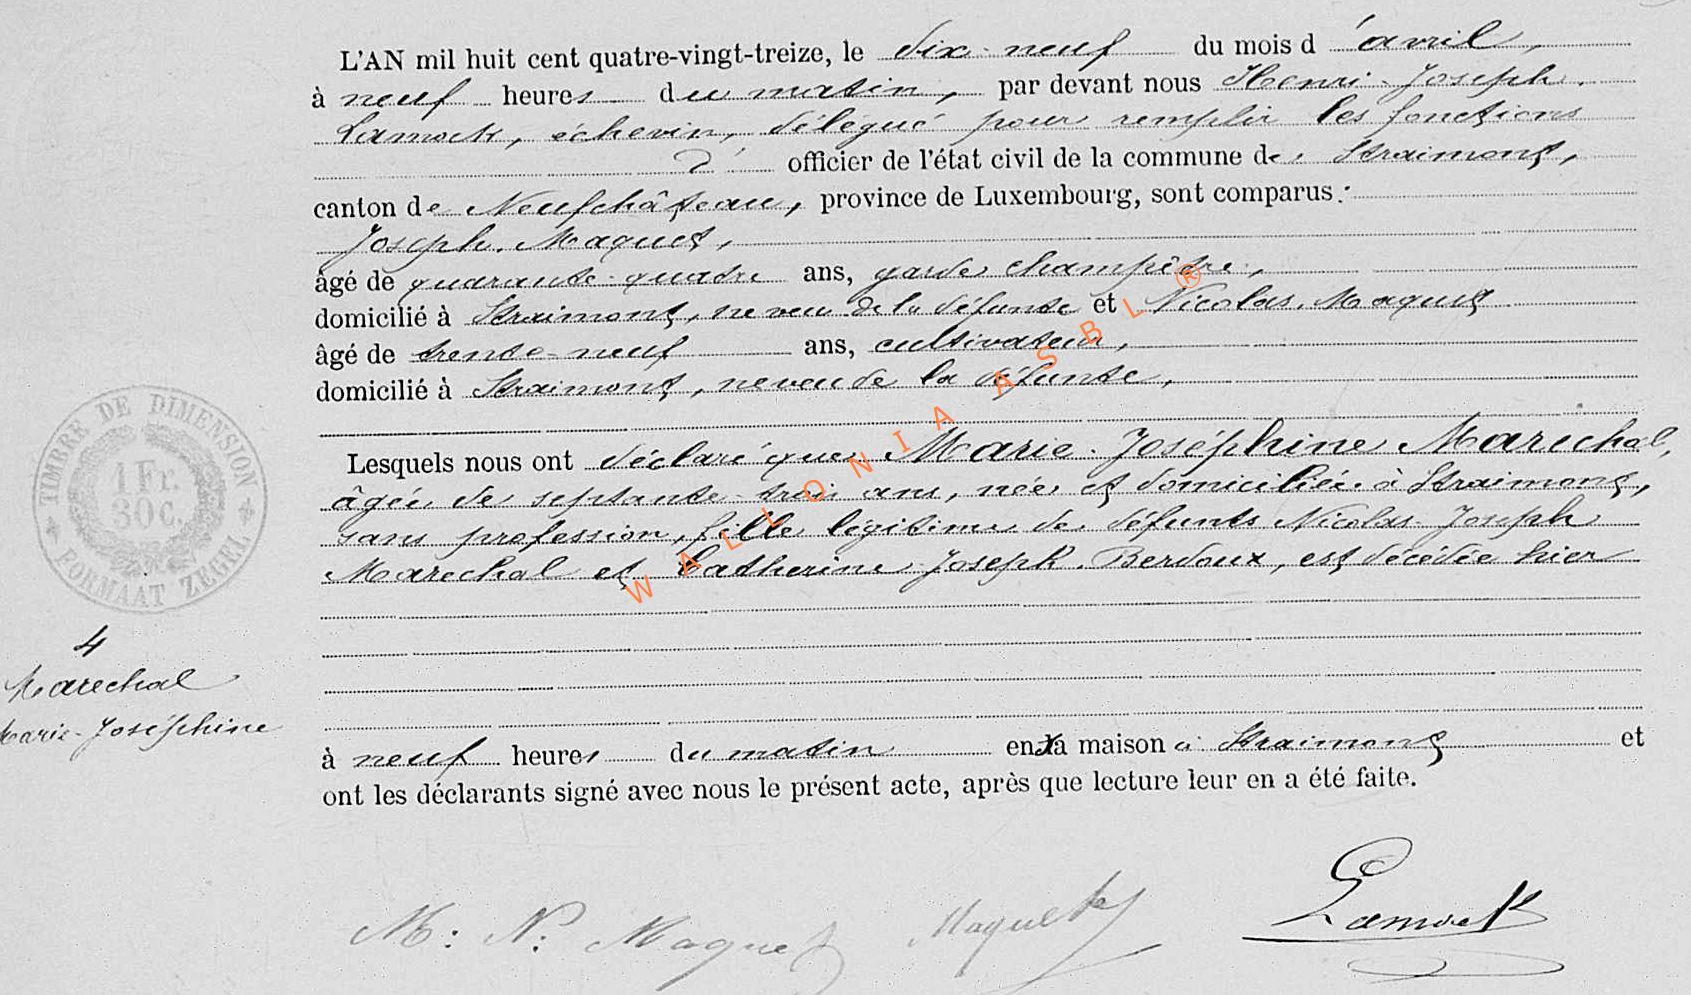 L'AN mil huit cent quatre-vingt-treize, le dix-neuf du mois d'avril,
à neuf heures du matin, par devant nous Henri-Joseph
Lamock, échevin, délégué pour remplir les fonctions
d' officier de l'état civil de la commune de Straimont,
canton de Neufchâteau, province de Luxembourg, sont comparus :
Joseph Maquet,
âgé de quarante-quatre ans, garde champêtre,
domicilié à Straimont, neveu de la défunte et Nicolas Maquet
âgé de trente-neuf ans, cultivateur,
domicilié à Straimont, neveu de la défunte,
Lesquels nous ont déclaré que Marie-Joséphine Marechal,
âgée de septante-trois ans, née et domiciliée à Straimont,
sans profession, fille légitime de défunts Nicolas-Joseph
Marechal et Catherine-Joseph Berdoux, est décédée hier
à neuf heures du matin en sa maison à Straimont et
ont les déclarants signé avec nous le présent acte, après que lecture leur en a été faite.
TIMBRE DE DIMENSION
1 Fr.
30 C.
FORMAAT ZEGEL
4
Marechal
Marie-Joséphine
M: N: Maquet Maquet Lamock
WALLONIA ASBL ®